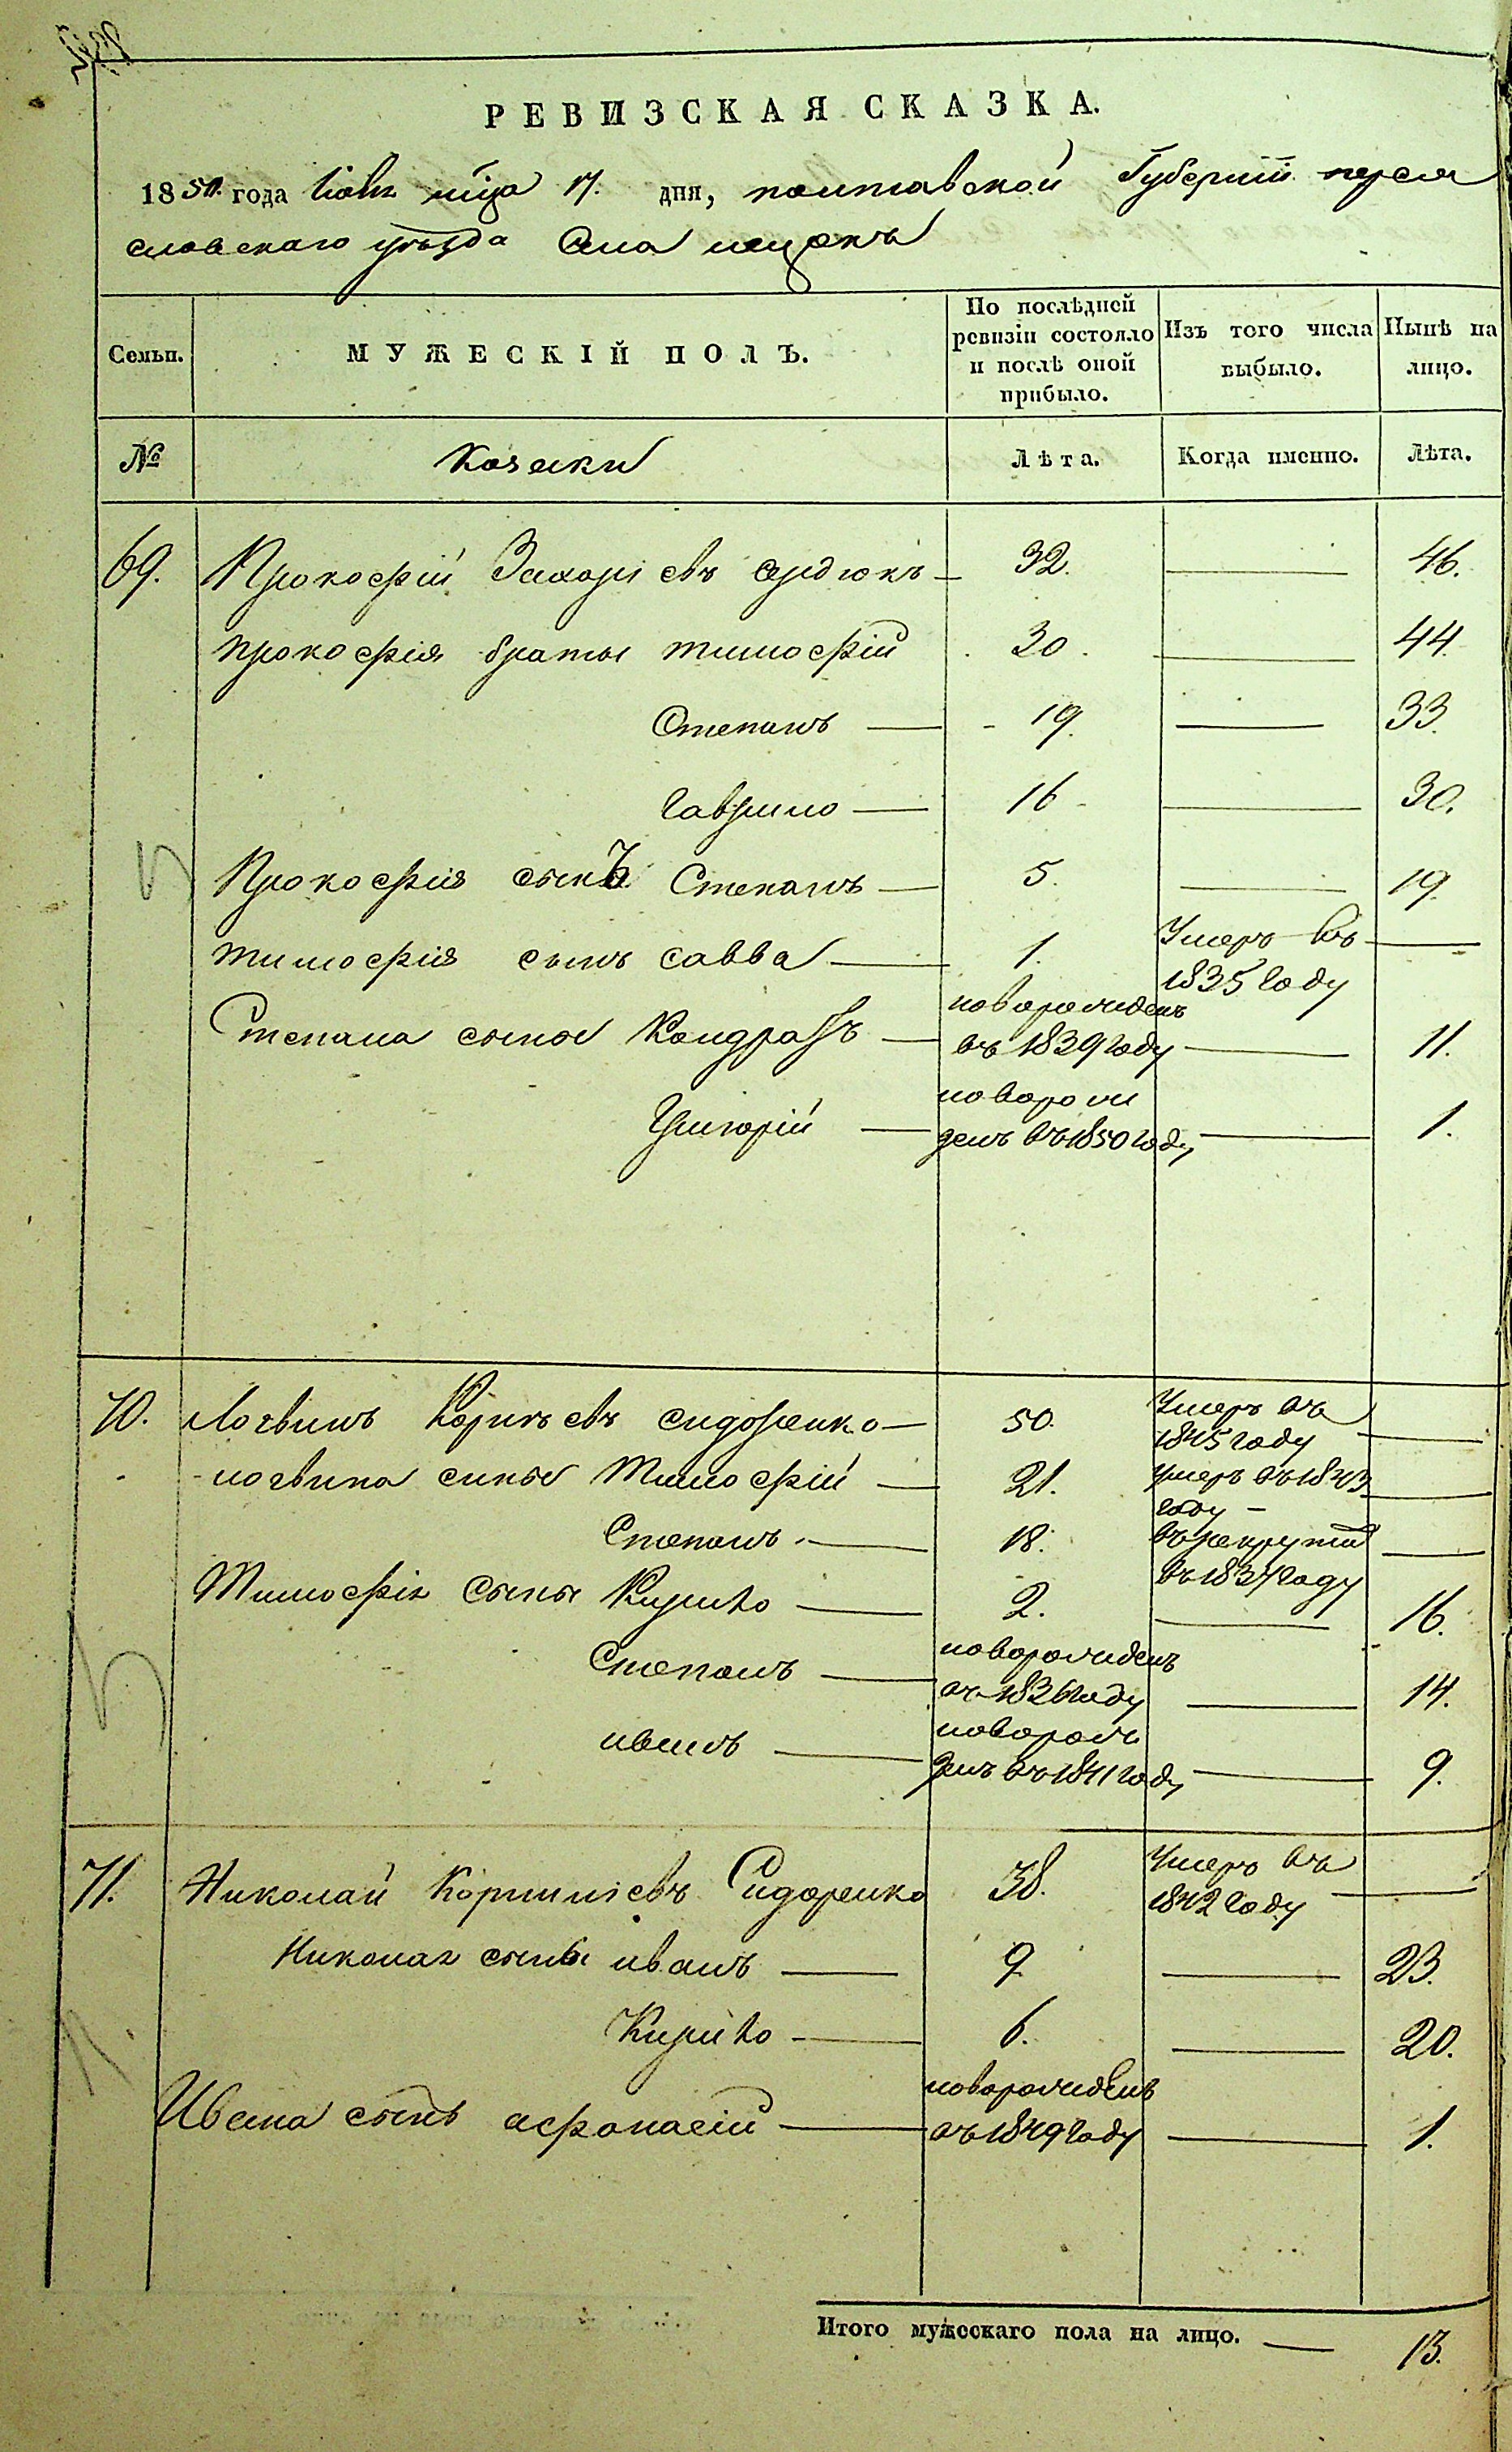 РЕВИЗСКАЯ СКАЗКА.
1850 года мца 17. дня, полтавской Губерній перея
славскаго уѣзда Села
Семьи.
МУЖЕСКІЙ ПОЛЪ.
По послѣдней ревизіи состояло и послѣ оной прибыло.
Изъ того числа выбыло.
Нынѣ на лицо.
№ Козаки Лѣта. Когда именно. Лѣта.
69. Прокофій Захаріевъ сердюкъ 32. 46.
прокофія браты тимофій 30. 44.
Степанъ 19. 33.
Гаврило 16 30.
Прокофія сынъ Степанъ 5. 19.
тимофія сынъ савва 1. Умеръ въ 1835 году
Степана сыны Кондратъ новорожденъ въ 1839 году 11.
Григорій новорож денъ въ 1850 году 1.
70. Логвинъ Корнѣевъ сидоренко 50. Умеръ въ 1845 году
логвина сины Тимофій 21. умеръ въ 1843 году
Степанъ 18. въ рекруты въ 1837 году
Тимофія сыны Кирило 2. 16.
Степанъ новорожденъ въ 1836 году 14.
иванъ новорож денъ въ 1841 году 9.
71. Николай Корниліевъ Сидоренко 38. Умеръ въ 1842 году
Николая сыны иванъ 9 23.
Кирило 6. 20.
Ивана сынъ афонасій новорожденъ въ 1849 году 1.
Итого мужескаго пола на лицо. 13.